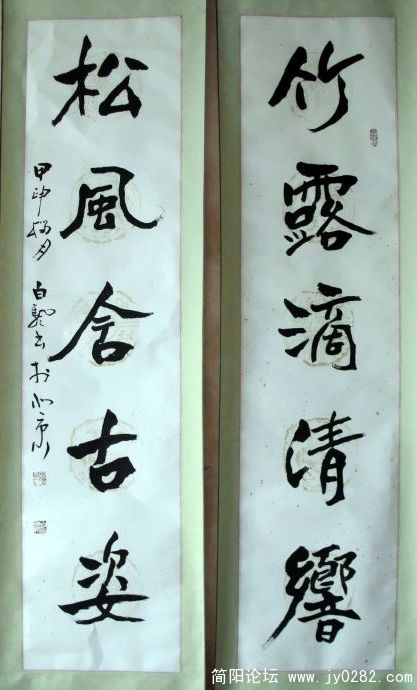 竹露滴清響
松風含古姿
甲申
白
书于
简阳论坛 www.jy0282.com